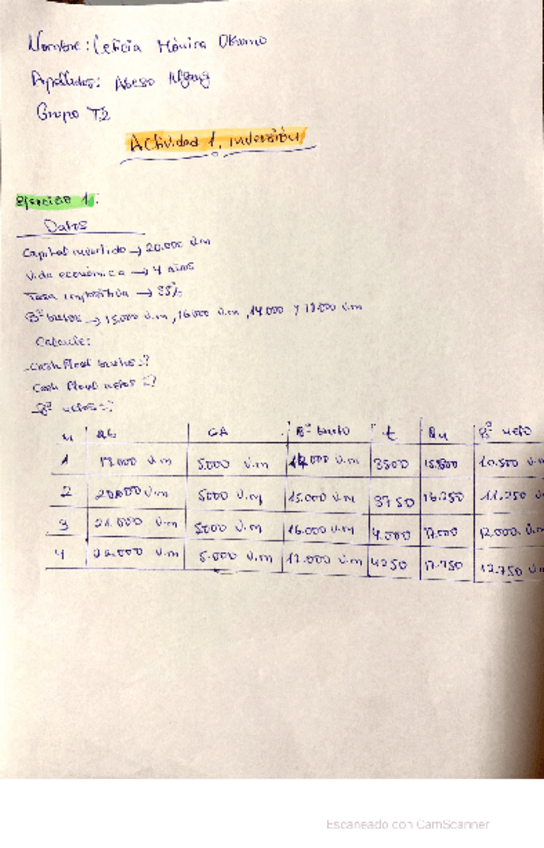 Nombre: Leticia Mónica Okomo
Apellidos: Abeso
Grupo T2
Actividad 1, inversión
Ejercicio 1:
Datos
Capital invertido → 20.000 u.m
Vida económica → 4 años
Tasa impositiva →
Bº brutos → 15.000 u.m, 16.000 u.m, 14.000 y 17.000 u.m
Calcule:
Cash Flow brutos=?
Cash flow netos=?
Bº netos=?
n Qb CA Bº bruto t Qn Bº neto
1 19.000 u.m 5.000 u.m 14.000 u.m 3500 15.500 10.500 u.m
2 20.000 u.m 5000 u.m 15.000 u.m 3750 16.250 11.250 u.m
3 21.000 u.m 5000 u.m 16.000 u.m 4.000 17.000 12.000 u.m
4 22.000 u.m 5.000 u.m 17.000 u.m 4250 17.750 12.750 u.m
Escaneado con CamScanner